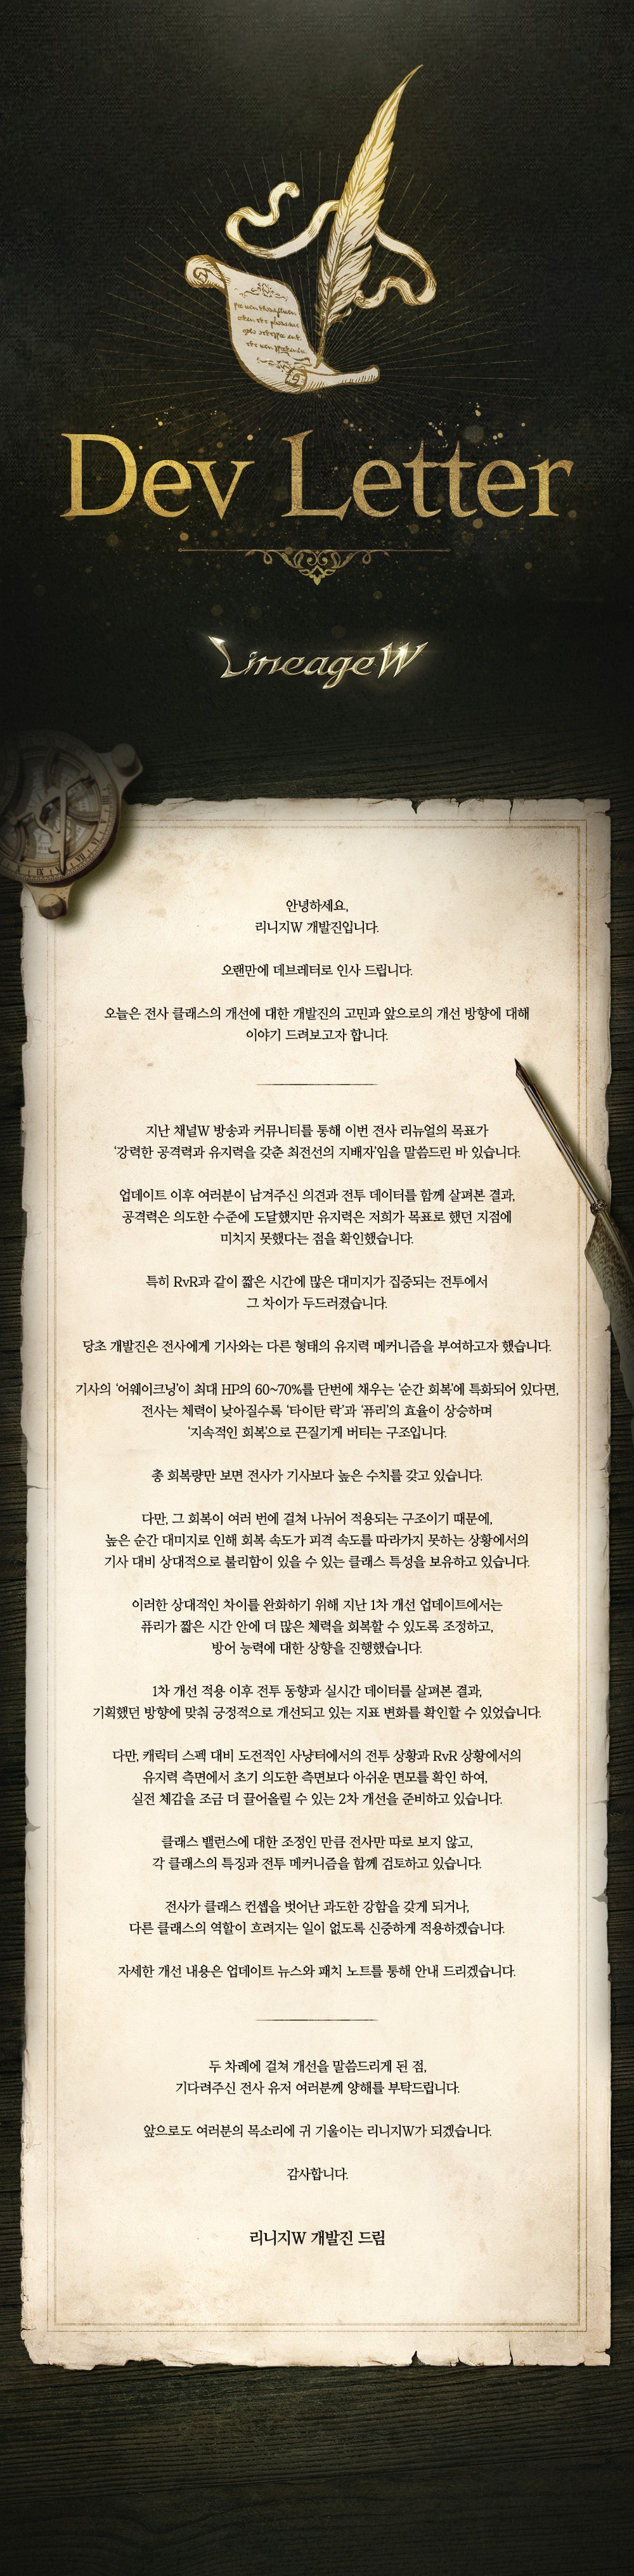 Dev Letter
Lineage W
안녕하세요,
리니지W 개발진입니다.
오랜만에 데브레터로 인사 드립니다.
오늘은 전사 클래스의 개선에 대한 개발진의 고민과 앞으로의 개선 방향에 대해
이야기 드려보고자 합니다.
지난 채널W 방송과 커뮤니티를 통해 이번 전사 리뉴얼의 목표가
‘강력한 공격력과 유지력을 갖춘 최전선의 지배자’임을 말씀드린 바 있습니다.
업데이트 이후 여러분이 남겨주신 의견과 전투 데이터를 함께 살펴본 결과,
공격력은 의도한 수준에 도달했지만 유지력은 저희가 목표로 했던 지점에
미치지 못했다는 점을 확인했습니다.
특히 RvR과 같이 짧은 시간에 많은 대미지가 집중되는 전투에서
그 차이가 두드러졌습니다.
당초 개발진은 전사에게 기사와는 다른 형태의 유지력 메커니즘을 부여하고자 했습니다.
기사의 ‘어웨이크닝’이 최대 HP의 60~70%를 단번에 채우는 ‘순간 회복’에 특화되어 있다면,
전사는 체력이 낮아질수록 ‘타이탄 락’과 ‘퓨리’의 효율이 상승하며
‘지속적인 회복’으로 끈질기게 버티는 구조입니다.
총 회복량만 보면 전사가 기사보다 높은 수치를 갖고 있습니다.
다만, 그 회복이 여러 번에 걸쳐 나뉘어 적용되는 구조이기 때문에,
높은 순간 대미지로 인해 회복 속도가 피격 속도를 따라가지 못하는 상황에서의
기사 대비 상대적으로 불리함이 있을 수 있는 클래스 특성을 보유하고 있습니다.
이러한 상대적인 차이를 완화하기 위해 지난 1차 개선 업데이트에서는
퓨리가 짧은 시간 안에 더 많은 체력을 회복할 수 있도록 조정하고,
방어 능력에 대한 상향을 진행했습니다.
1차 개선 적용 이후 전투 동향과 실시간 데이터를 살펴본 결과,
기획했던 방향에 맞춰 긍정적으로 개선되고 있는 지표 변화를 확인할 수 있었습니다.
다만, 캐릭터 스펙 대비 도전적인 사냥터에서의 전투 상황과 RvR 상황에서의
유지력 측면에서 초기 의도한 측면보다 아쉬운 면모를 확인 하여,
실전 체감을 조금 더 끌어올릴 수 있는 2차 개선을 준비하고 있습니다.
클래스 밸런스에 대한 조정인 만큼 전사만 따로 보지 않고,
각 클래스의 특징과 전투 메커니즘을 함께 검토하고 있습니다.
전사가 클래스 컨셉을 벗어난 과도한 강함을 갖게 되거나,
다른 클래스의 역할이 흐려지는 일이 없도록 신중하게 적용하겠습니다.
자세한 개선 내용은 업데이트 뉴스와 패치 노트를 통해 안내 드리겠습니다.
두 차례에 걸쳐 개선을 말씀드리게 된 점,
기다려주신 전사 유저 여러분께 양해를 부탁드립니다.
앞으로도 여러분의 목소리에 귀 기울이는 리니지W가 되겠습니다.
감사합니다.
리니지W 개발진 드림